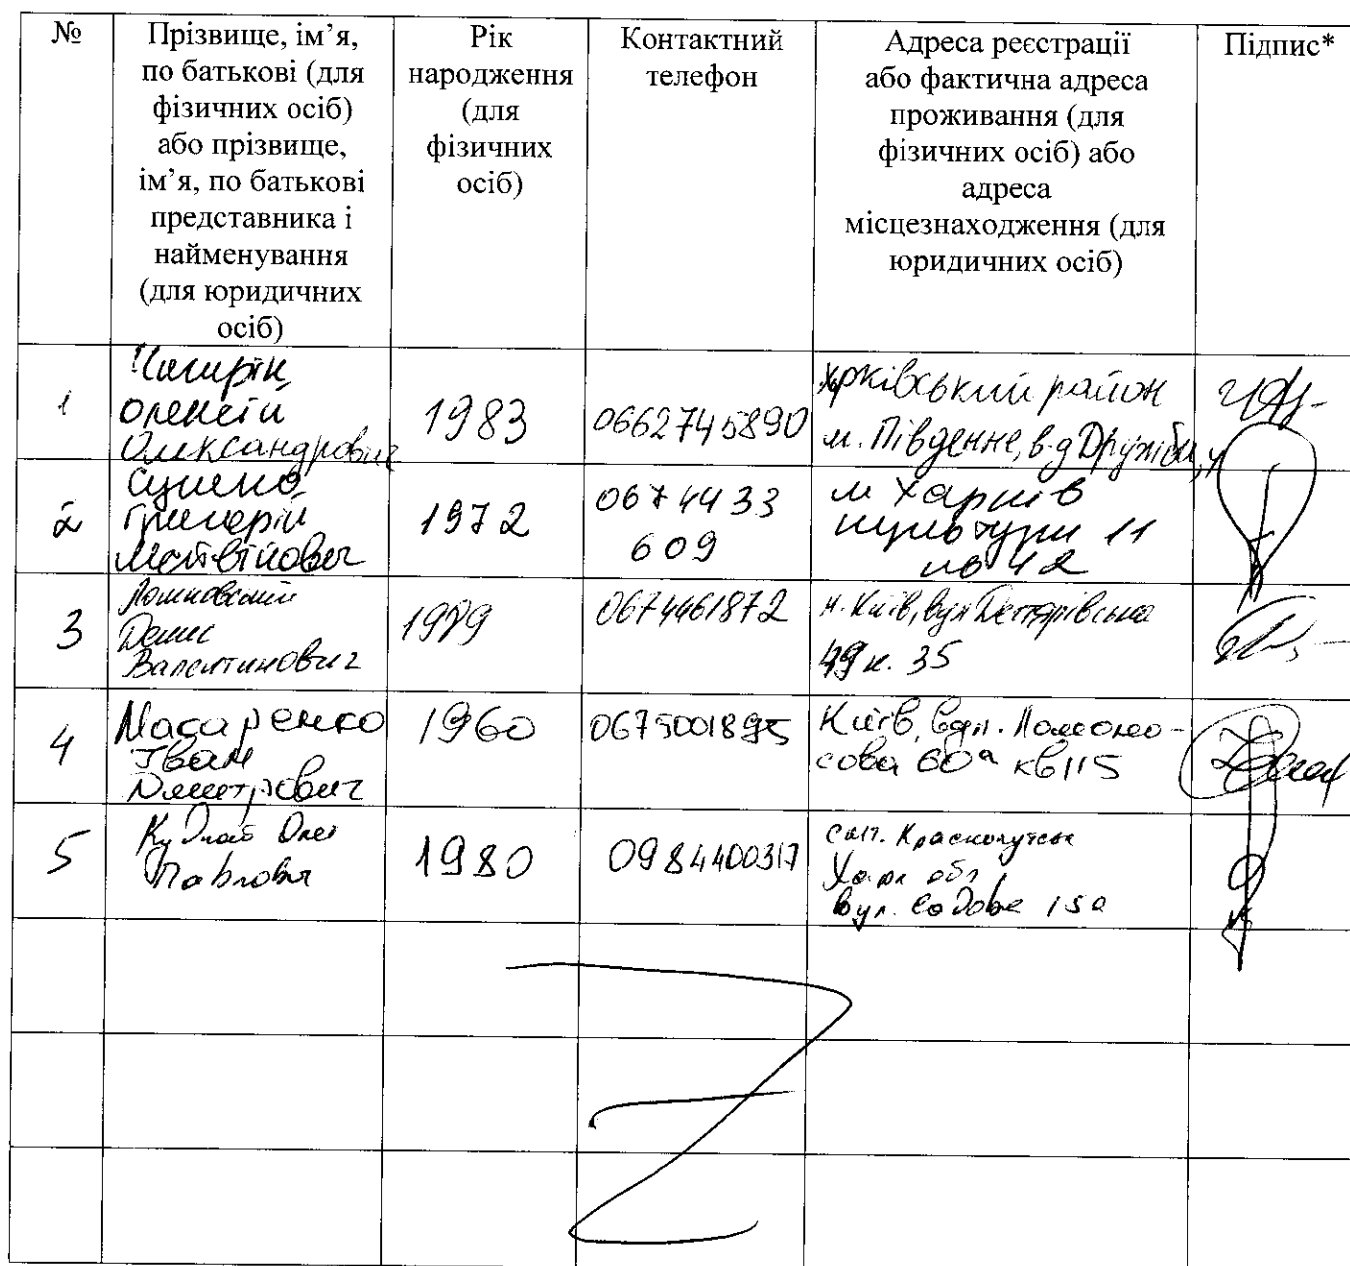 №
Прізвище, ім’я,
по батькові (для
фізичних осіб)
або прізвище,
ім’я, по батькові
представника і
найменування
(для юридичних
осіб)
Рік
народження
(для
фізичних
осіб)
Контактний
телефон
Адреса реєстрації
або фактична адреса
проживання (для
фізичних осіб) або
адреса
місцезнаходження (для
юридичних осіб)
Підпис*
1
Олексій
Олександрович
1983
0662745890
Хрківський район
м. Південне, в-д Дружби,
2
Григорій
Матвійович
1972
0674433
609
м Харків
культури 11
кв 42
3
Денис
Валентинович
0674461872
м. Київ, вул Дегтярівська
49 к. 35
4
Макаренко
Іван
Дмитрович
1960
0675001895
Київ, вул. Ломоно-
сова 60а кв115
5
Кудлай Олег
Павлович
1980
0984400317
смт. Краснокутськ
Харк обл
вул. Садова 15а